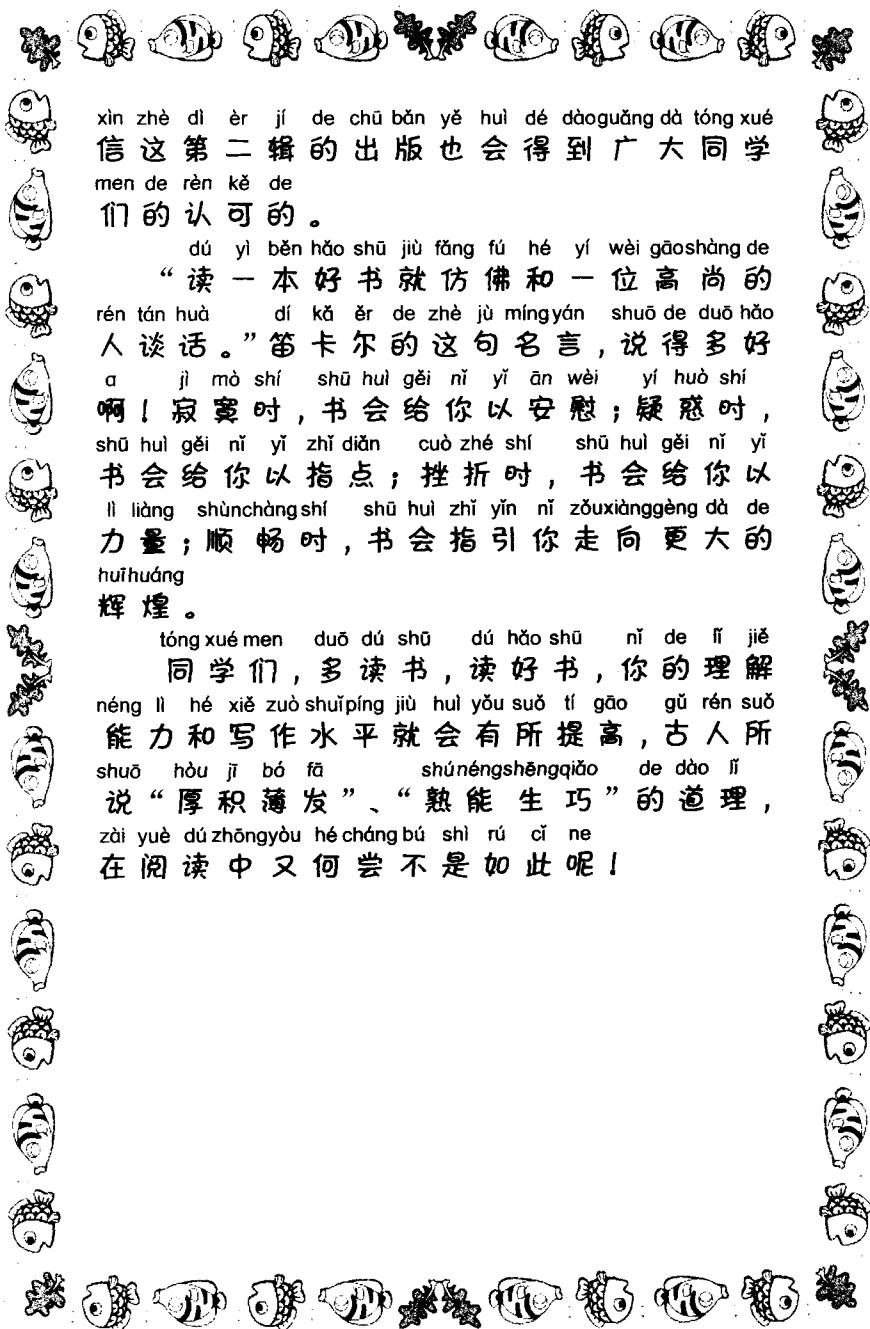 xìn zhè dì èr jí de chū bǎn yě huì dé dàoguǎng dà tóng xué
信这第二辑的出版也会得到广大同学
men de rèn kě de
们的认可的。
dú yì běn hǎo shū jiù fǎng fú hé yí wèi gāoshàng de
“读一本好书就仿佛和一位高尚的
rén tán huà dí kǎ ěr de zhè jù míngyán shuō de duō hǎo
人谈话。”笛卡尔的这句名言,说得多好
a jì mò shí shū huì gěi nǐ yǐ ān wèi yí huò shí
啊!寂寞时,书会给你以安慰;疑惑时,
shū huì gěi nǐ yǐ zhǐ diǎn cuò zhé shí shū huì gěi nǐ yǐ
书会给你以指点;挫折时,书会给你以
lì liàng shùnchàng shí shū huì zhǐ yǐn nǐ zǒuxiànggèng dà de
力量;顺畅时,书会指引你走向更大的
huīhuáng
辉煌。
tóng xué men duō dú shū dú hǎo shū nǐ de lǐ jiě
同学们,多读书,读好书,你的理解
néng lì hé xiě zuò shuǐpíng jiù huì yǒu suǒ tí gāo gǔ rén suǒ
能力和写作水平就会有所提高,古人所
shuō hòu jī bó fā shúnéngshēngqiǎo de dào lǐ
说“厚积薄发”、“熟能生巧”的道理,
zài yuè dú zhōngyòu hé cháng bú shì rú cǐ ne
在阅读中又何尝不是如此呢!